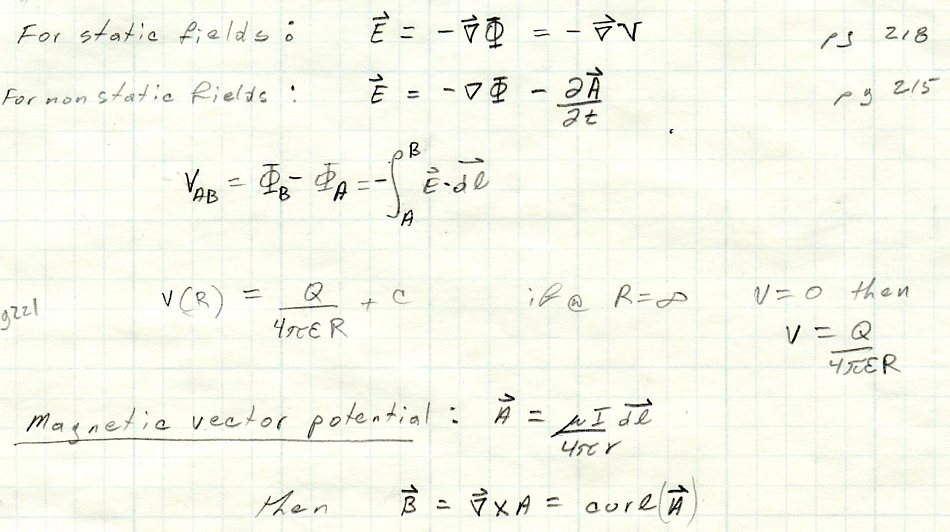 For static fields: E⃗ = -∇⃗Φ = -∇⃗V pg 218
For nonstatic fields: E⃗ = -∇Φ - ∂A⃗/∂t pg 215
V_AB = Φ_B - Φ_A = -∫_A^B E⃗·dl⃗
g221 V(R) = Q/4πεR + C if @ R=∞ V=0 then
V = Q/4πεR
Magnetic vector potential: A⃗ = μI dl⃗/4πr
then B⃗ = ∇⃗×A = curl(A⃗)